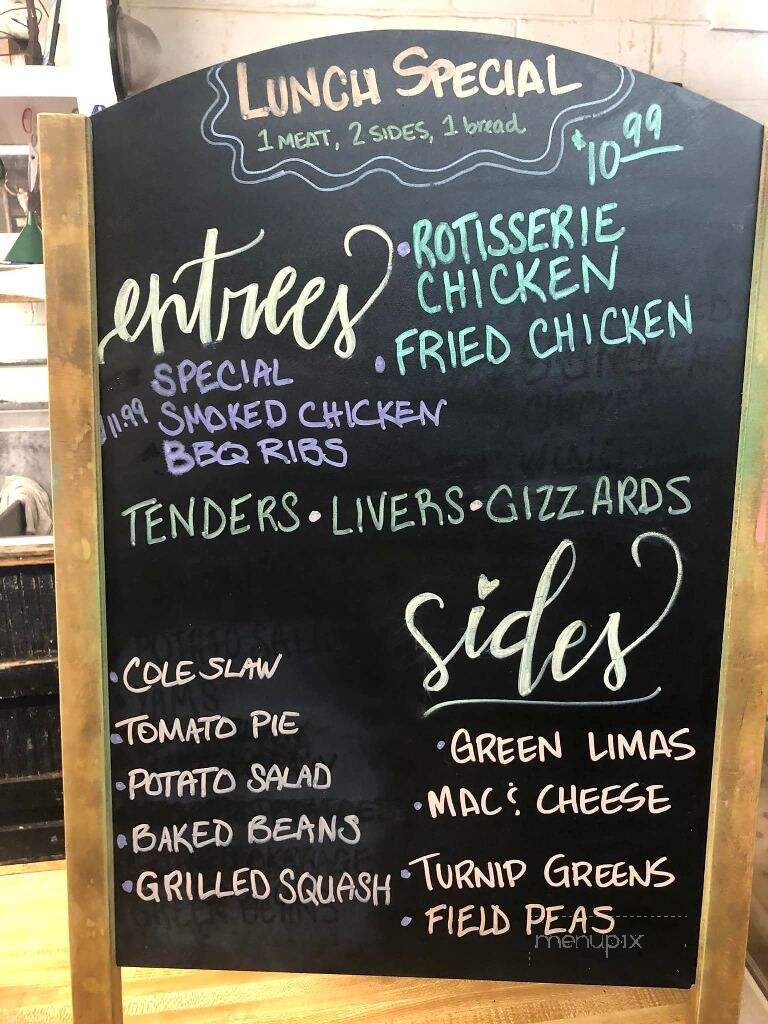 LUNCH SPECIAL
1 MEAT, 2 SIDES, 1 bread
$10.99
entrees
• ROTISSERIE
CHICKEN
• FRIED CHICKEN
SPECIAL
$11.99 SMOKED CHICKEN
BBQ RIBS
TENDERS • LIVERS • GIZZARDS
sides
• COLE SLAW
• TOMATO PIE
• POTATO SALAD
• BAKED BEANS
• GRILLED SQUASH
• GREEN LIMAS
• MAC & CHEESE
• TURNIP GREENS
• FIELD PEAS
menupix